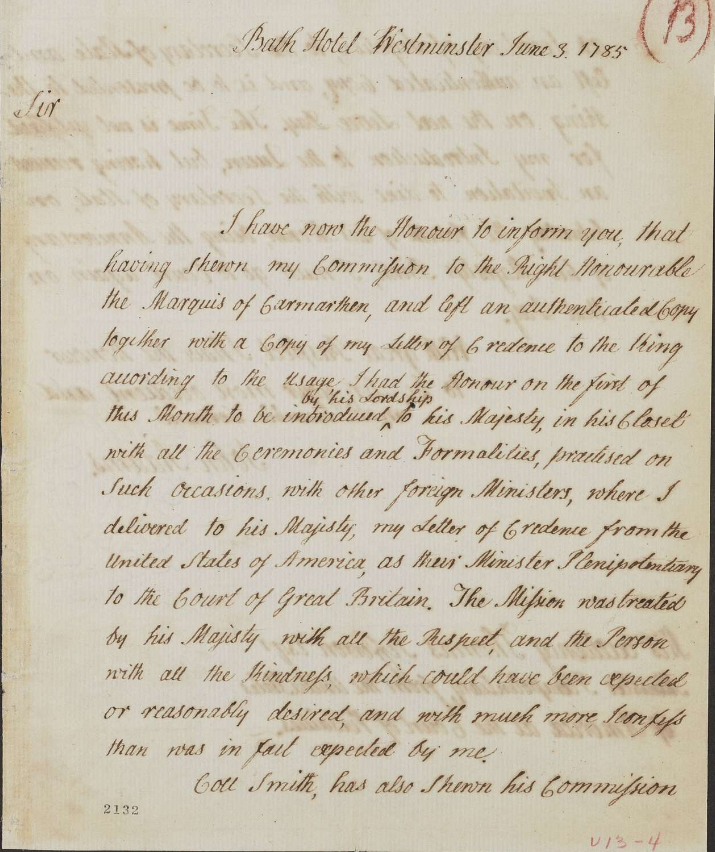 13
Bath Hotel Westminster June 3. 1785
Sir
I have now the Honour to inform you, that
having shewn my Commission to the Right Honourable
the Marquis of Carmarthen, and left an authenticated Copy
together with a Copy of my Letter of Credence to the King
according to the usage I had the Honour on the first of
by his Lordship
this Month to be introduced ^ to his Majesty, in his Closet
with all the Ceremonies and Formalities, practised on
Such occasions, with other foreign Ministers, where I
delivered to his Majesty, my Letter of Credence from the
United States of America, as their Minister Plenipotentiary
to the Court of Great Britain. The Mission was treated
by his Majesty with all the Respect, and the Person
with all the Kindness, which could have been expected
or reasonably desired, and with much more, I confess
than was in fact expected by me.
Coll Smith, has also shewn his Commission
2132
V13-4